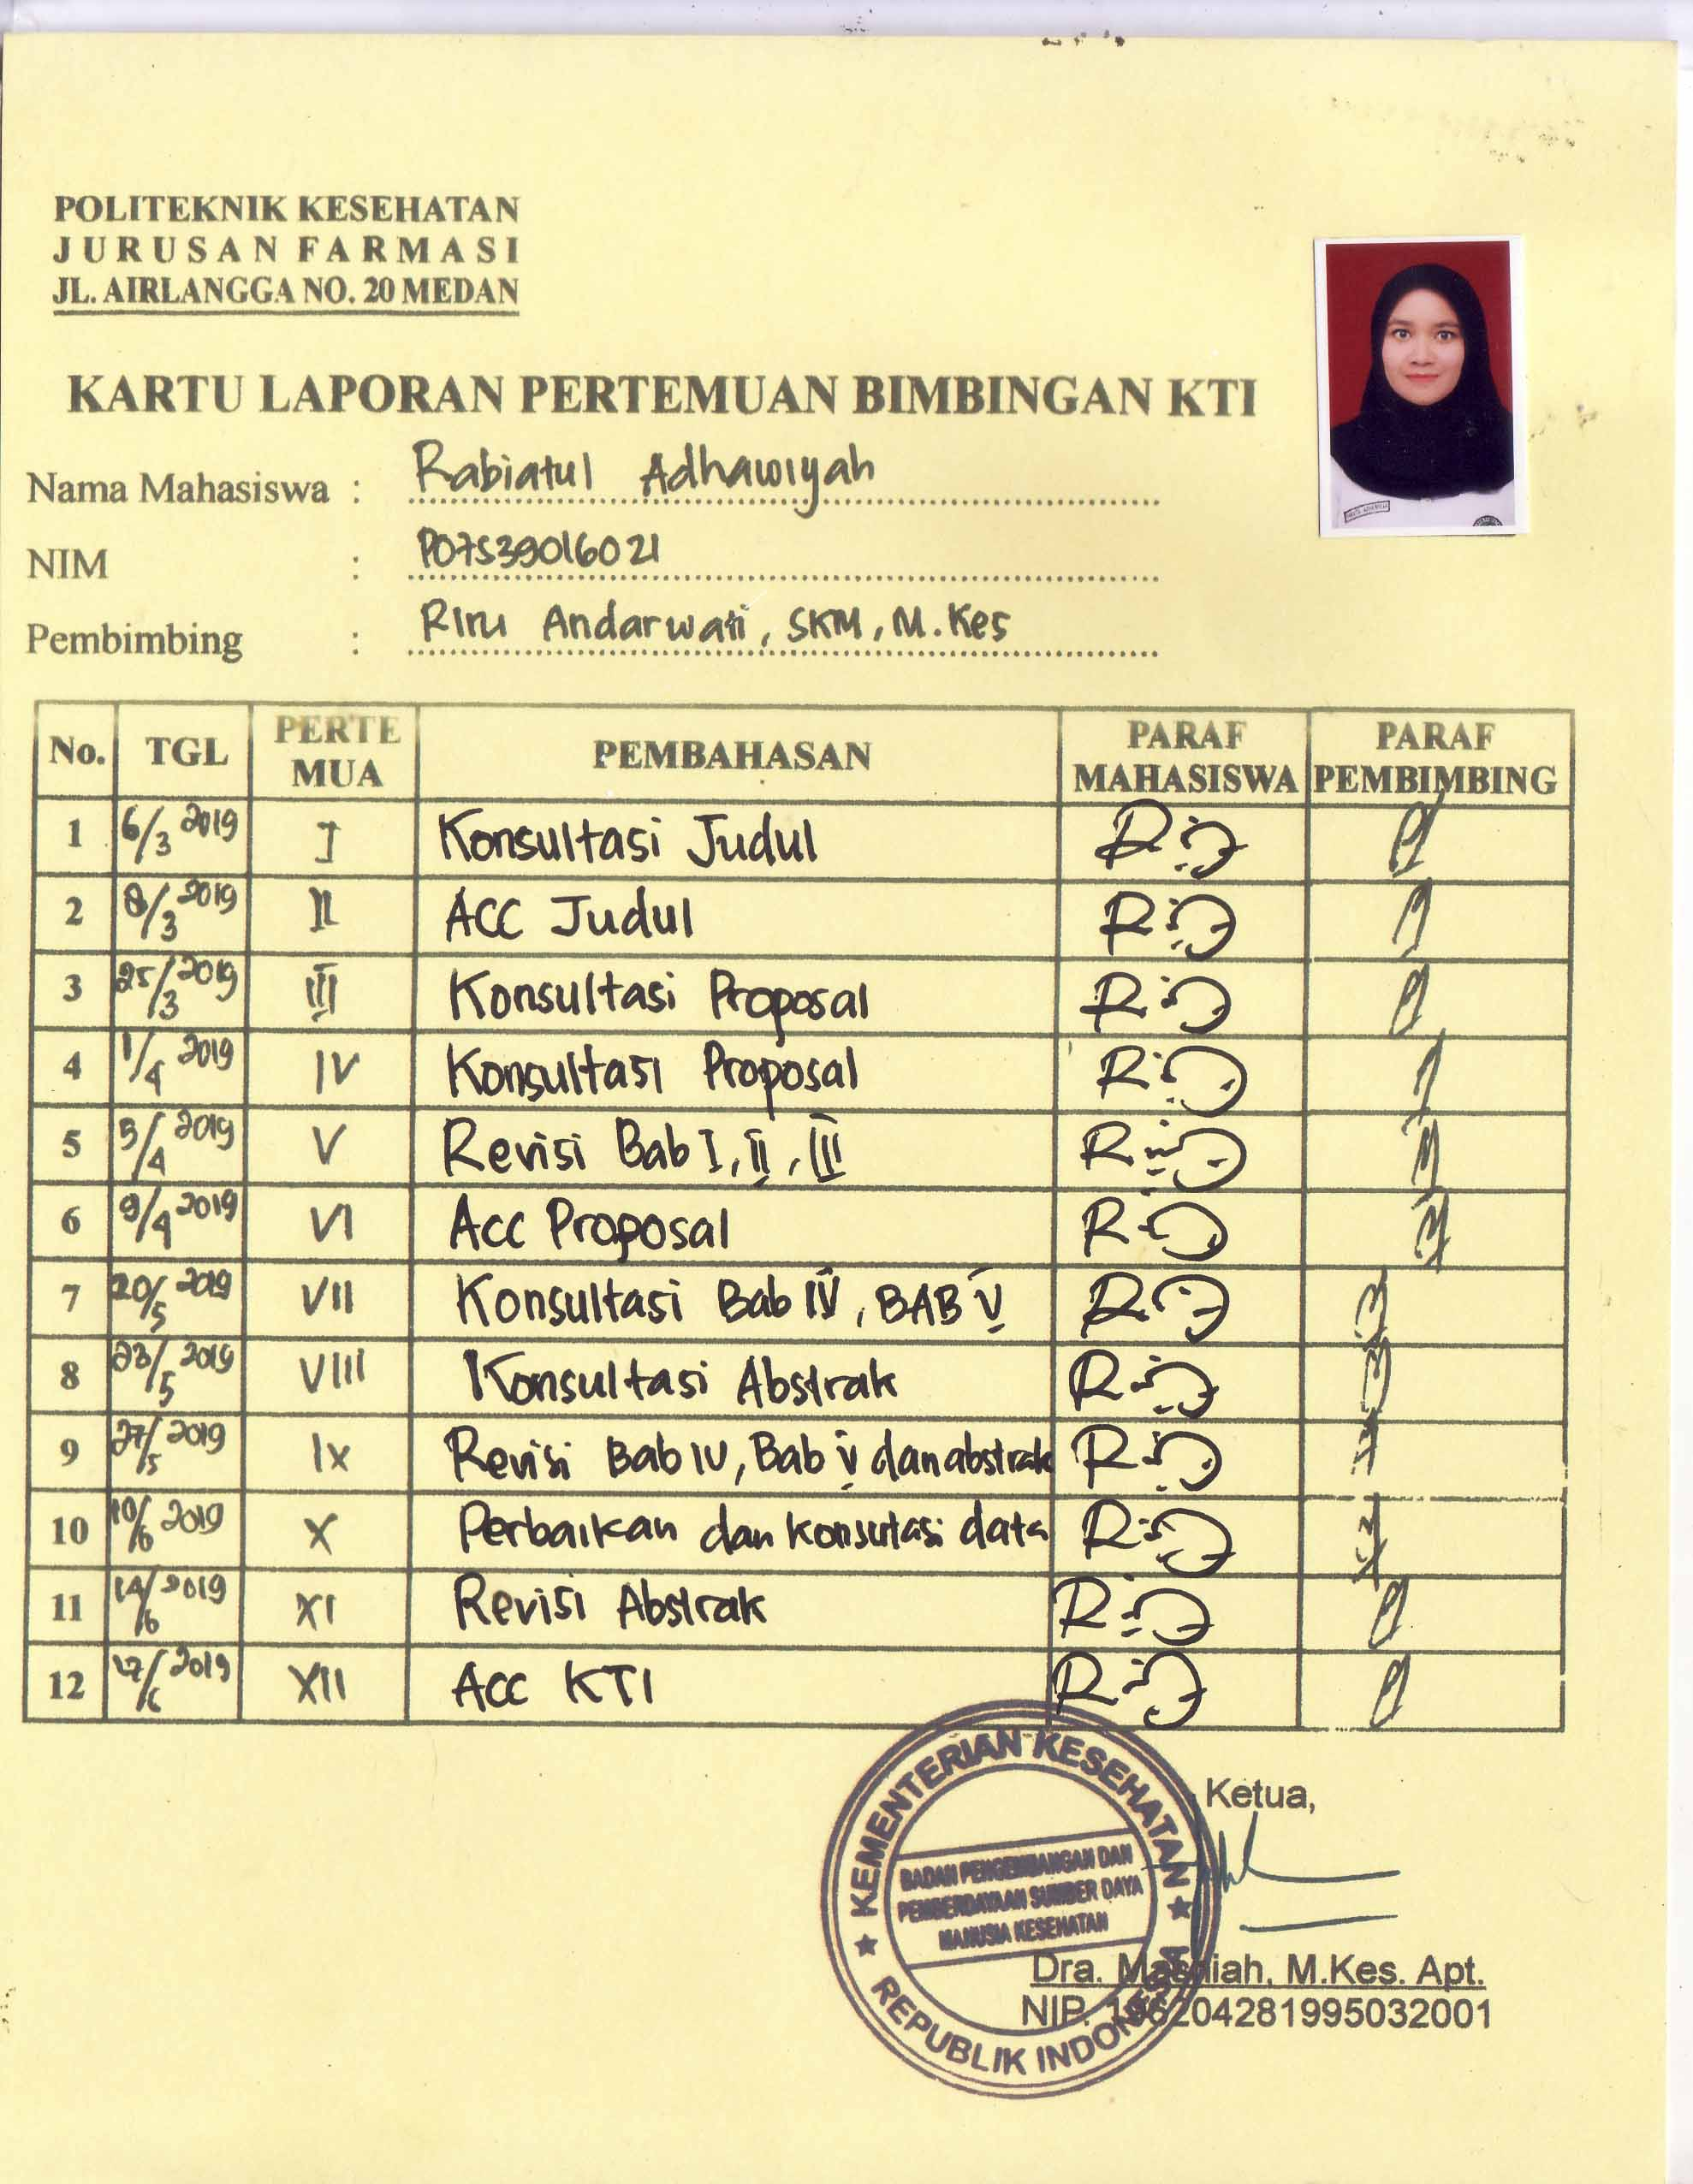 POLITEKNIK KESEHATAN
JURUSAN FARMASI
JL. AIRLANGGA NO. 20 MEDAN
KARTU LAPORAN PERTEMUAN BIMBINGAN KTI
Nama Mahasiswa : Rabiatul Adhawiyah
NIM : P07539016021
Pembimbing : Rini Andarwati, SKM, M.Kes
No. TGL PERTE MUA PEMBAHASAN PARAF MAHASISWA PARAF PEMBIMBING
1 6/3 2019 I Konsultasi Judul
2 8/3 2019 II ACC Judul
3 25/3 2019 III Konsultasi Proposal
4 1/4 2019 IV Konsultasi Proposal
5 5/4 2019 V Revisi Bab I, II, III
6 9/4 2019 VI Acc Proposal
7 20/5 2019 VII Konsultasi Bab IV, BAB V
8 23/5 2019 VIII Konsultasi Abstrak
9 27/5 2019 IX Revisi Bab IV, Bab V dan abstrak
10 10/6 2019 X Perbaikan dan konsutasi data
11 14/6 2019 XI Revisi Abstrak
12 17/6 2019 XII Acc KTI
KEMENTERIAN KESEHATAN
BADAN PENGEMBANGAN DAN
PEMBERDAYAAN SUMBER DAYA
MANUSIA KESEHATAN
REPUBLIK INDONESIA
Ketua,
Dra. Masniah, M.Kes. Apt.
NIP. 196204281995032001